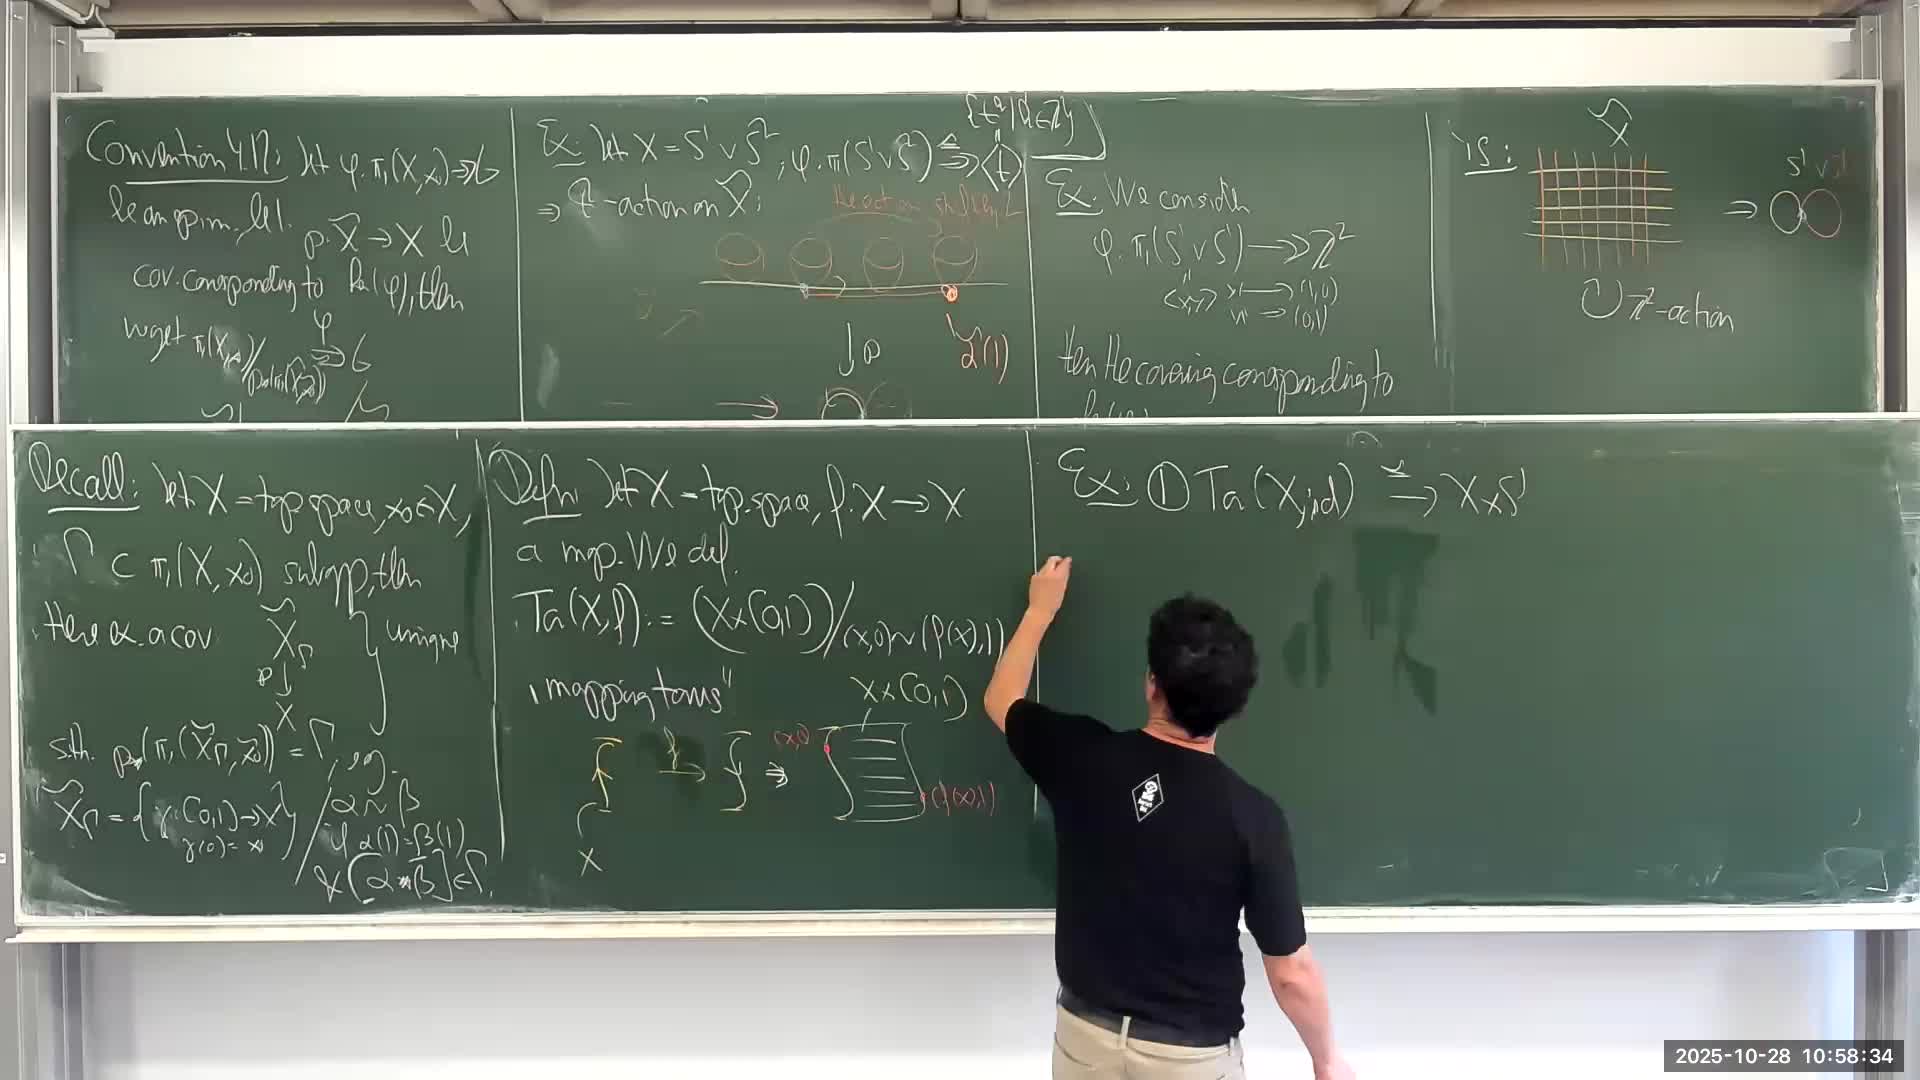 Convention 4.12: Let φ: π₁(X,x₀) → G
be an epim., let
p: X̃ → X be
cov. corresponding to ker(φ), then
we get π₁(X,x₀)/p_*(π₁(X̃,x̃₀)) → G
φ
≅
Ex: Let X = S¹ ∨ S², φ: π₁(S¹ ∨ S²) ≅→ ⟨t⟩
{tᵃ | a ∈ ℤ}
⇒ -action on X̃:
the action
↓ p
α̃(1)
Ex: We consider
φ: π₁(S¹ ∨ S¹) ↠ ℤ²
⟨x,y⟩ x ↦ (1,0)
y ↦ (0,1)
then the covering corresponding to
is:
X̃
⇒
S¹ ∨ S¹
ℤ²-action
Recall: Let X = top space, x₀ ∈ X,
Γ ⊂ π₁(X,x₀) subgp, then
there ex. a cov
X̃_Γ
p ↓
X
unique
s.th. p_*(π₁(X̃_Γ, x̃₀)) = Γ, eg.
X̃_Γ = {γ: [0,1] → X
γ(0) = x₀} / α ~ β
if α(1) = β(1)
& [α * β̄] ∈ Γ.
Defn: Let X = top. space, f: X → X
a map. We def.
Ta(X,f) := (X×[0,1]) / (x,0) ~ (f(x),1)
"mapping torus"
X×[0,1]
f
→
⇒
(x,0)
(f(x),1)
X
Ex: ① Ta(X,id) ≅→ X×S¹
2025-10-28 10:58:34